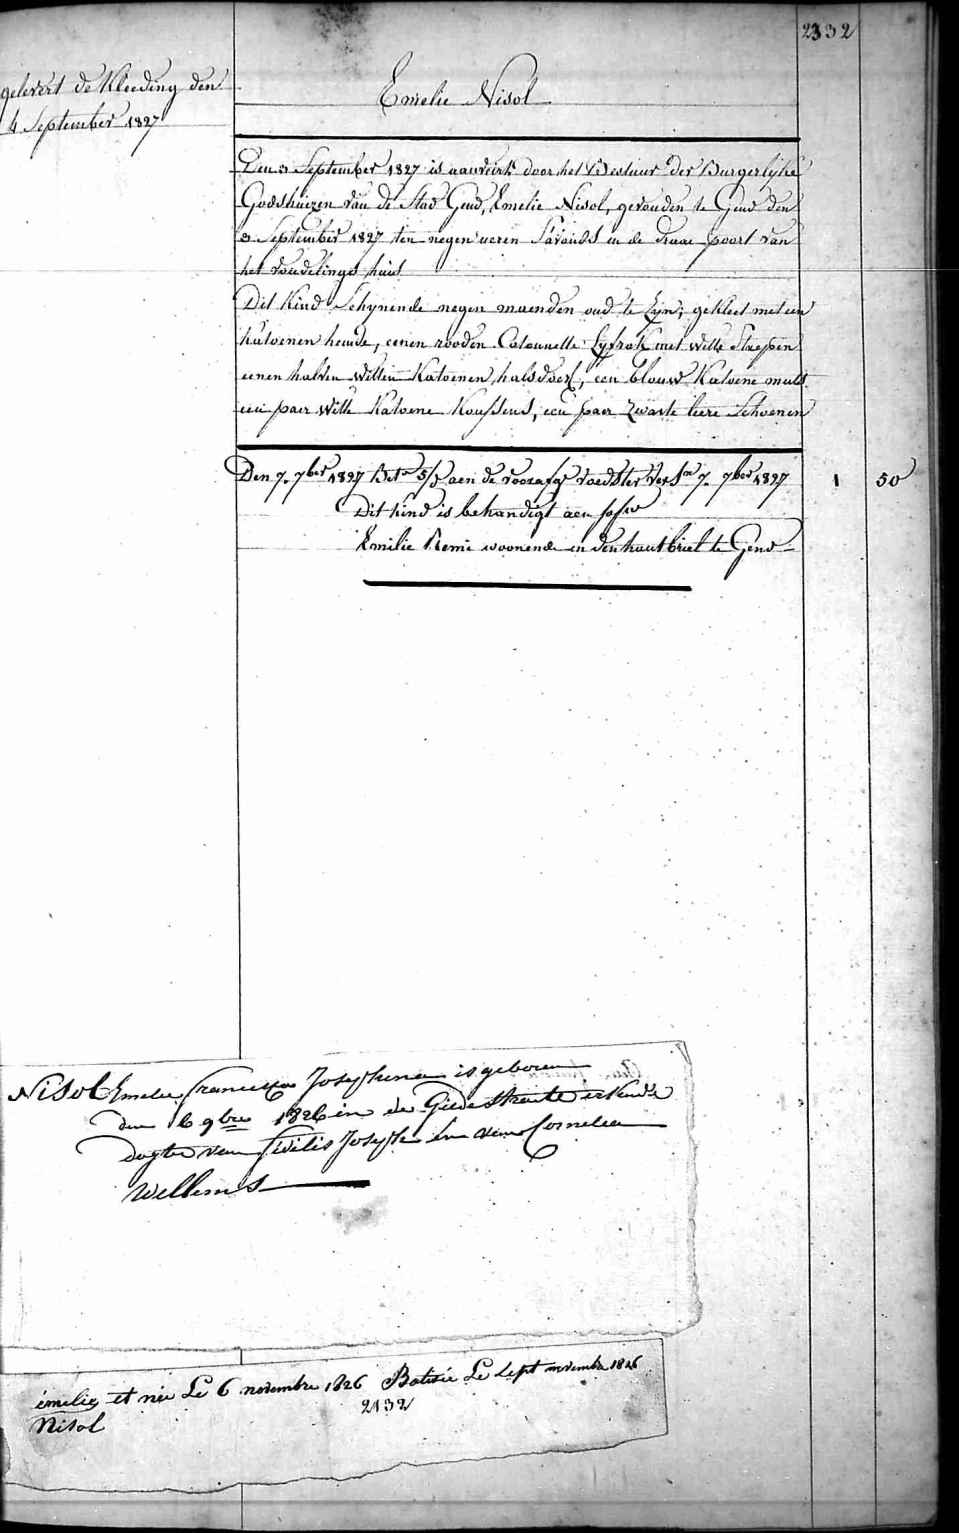 2132
gelevert de Kleeding den
4 September 1827
Emelie Nisol
Den 3 September 1827 is aanveirt door het Bestuur der Burgerlyke
Godshuizen van de Stad Gend, Emelie Nisol, gevonden te Gend den
3 September 1827 ten negen ueren S'avonds in de draae-poort van
het voedelings huis
Dit Kind Schynende negen maenden oud te Zyn, gekleet met een
katoenen hemde, eenen rooden Calounette Lyfrok met witte Streepen
eenen halven witten Katoenen halsdoek, een blouw Katoene muts
een paer witte Katoene Koussens, een paer Zwarte leere Schoenen
Den 7. 7ber 1827 aen de voedster 7. 7ber 1827 1 50
Dit Kind is behandigt aen
Emilie Remi woonende in den houtbriel te Gend
Nisol Emelie Francisca Josephina is geboren
den 6 9bre 1826 in de Gilde Straete erkende
dogter van Josephe en van Cornelia
Willems
émelie et née Le 6 novembre 1826 Batisée Le Sept novembre 1826
Nisol 2132